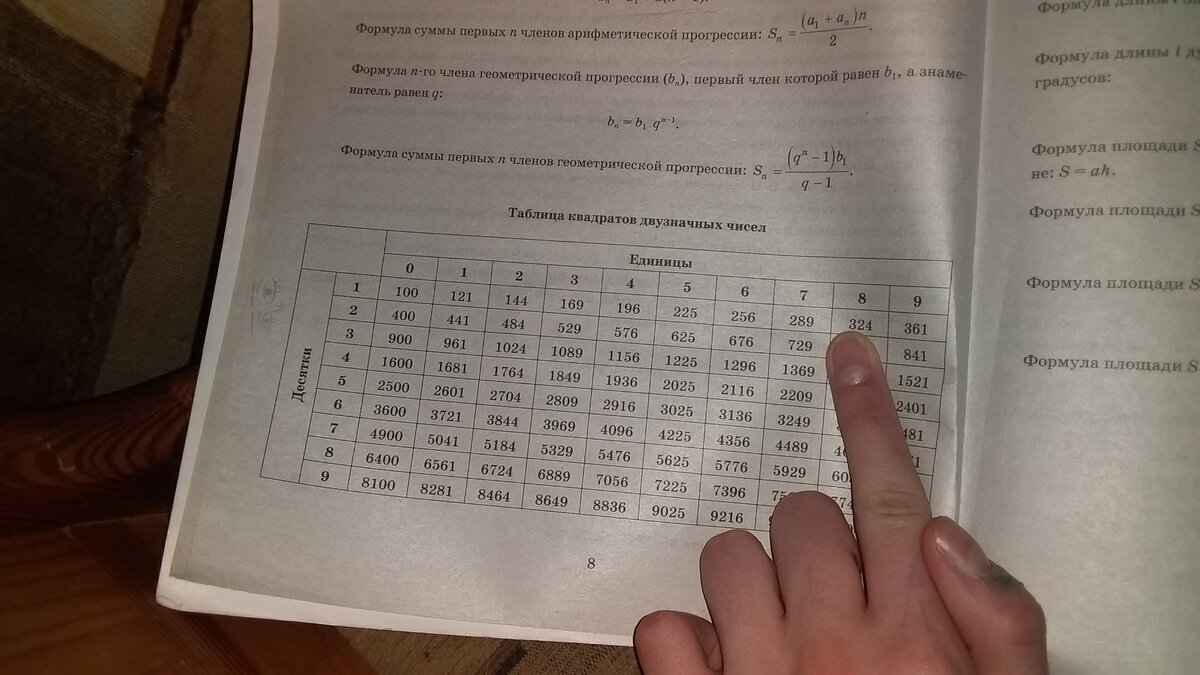 Формула суммы первых n членов арифметической прогрессии: Sₙ = (a₁ + aₙ)n / 2.
Формула n-го члена геометрической прогрессии (bₙ), первый член которой равен b₁, а знаме-
натель равен q:
bₙ = b₁ qⁿ⁻¹.
Формула суммы первых n членов геометрической прогрессии: Sₙ = (qⁿ − 1)b₁ / q − 1.
Таблица квадратов двузначных чисел
Единицы
0 1 2 3 4 5 6 7 8 9
Десятки
1 100 121 144 169 196 225 256 289 324 361
2 400 441 484 529 576 625 676 729 841
3 900 961 1024 1089 1156 1225 1296 1369 1521
4 1600 1681 1764 1849 1936 2025 2116 2209 2401
5 2500 2601 2704 2809 2916 3025 3136 3249 481
6 3600 3721 3844 3969 4096 4225 4356 4489
7 4900 5041 5184 5329 5476 5625 5776 5929
8 6400 6561 6724 6889 7056 7225 7396
9 8100 8281 8464 8649 8836 9025 9216
8
Формула длины
Формула длины l
градусов:
Формула площади S
не: S = ah.
Формула площади S
Формула площади S
Формула площади S